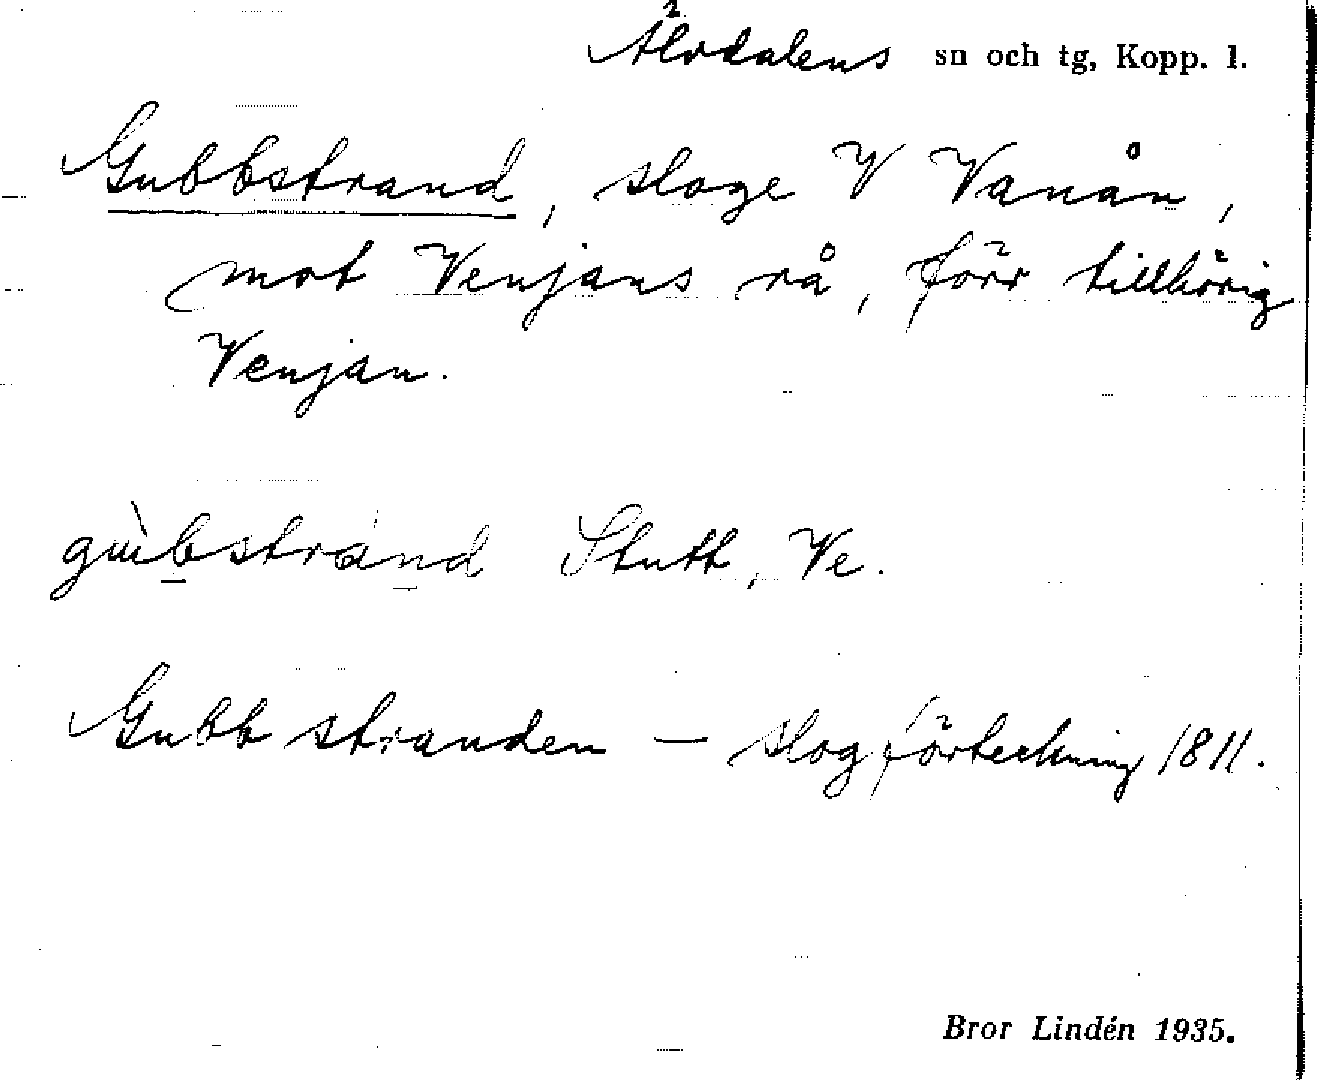 Älvdalens sn och tg, Kopp. l.
Gubbstrand, sloge V Vanån,
mot Venjans rå, förr tillhörig
Venjan.
gùbstrand Stutt, Ve.
Gubbstranden — slogförteckning 1811.
Bror Lindén 1935.